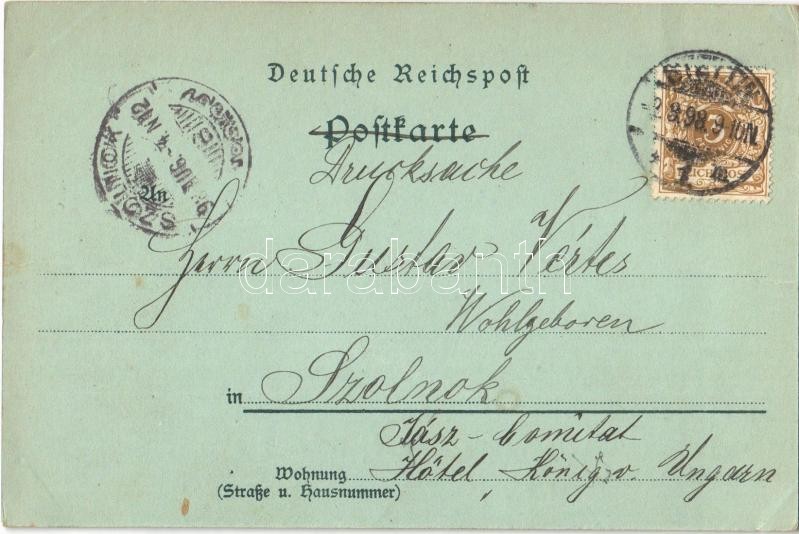 Deutsche Reichspost
Postkarte
Drucksache
An
Herrn Gustav Vértes
Wohlgeboren
in Szolnok
Jász-Comitat
Wohnung Hôtel König v. Ungarn
(Straße u. Hausnummer)
STETTIN
2.8.98. 9-10N.
1
REICHSPOST
SZOLNOK
darabanth